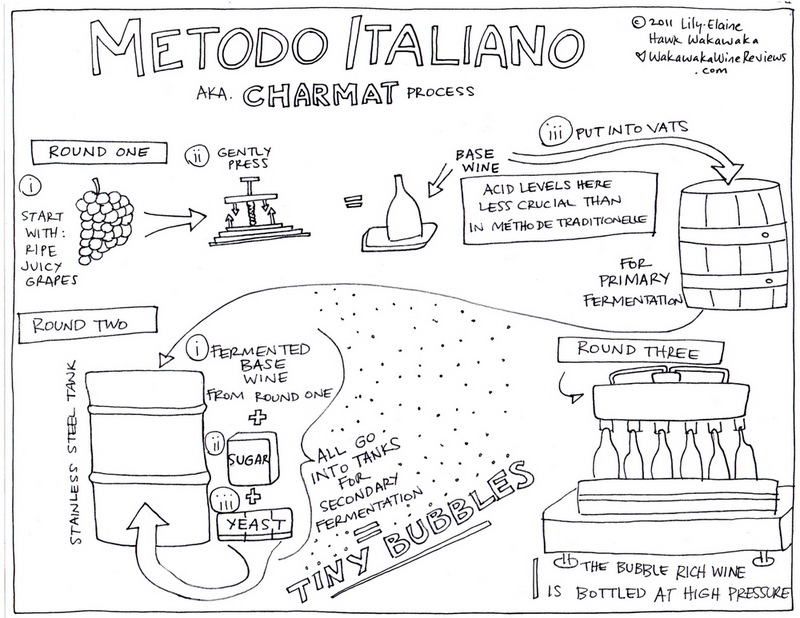 METODO ITALIANO
AKA. CHARMAT PROCESS
© 2011 Lily-Elaine
Hawk Wakawaka
♡WakawakaWineReviews
.com
ROUND ONE
i
START
WITH:
RIPE
JUICY
GRAPES
ii GENTLY
PRESS
=
BASE
WINE
iii PUT INTO VATS
ACID LEVELS HERE
LESS CRUCIAL THAN
IN MÉTHODE TRADITIONELLE
FOR
PRIMARY
FERMENTATION
ROUND TWO
STAINLESS STEEL TANK
i FERMENTED
BASE
WINE
FROM ROUND ONE
+
ii SUGAR
+
iii YEAST
ALL GO
INTO TANKS
FOR
SECONDARY
FERMENTATION
=
TINY BUBBLES
ROUND THREE
THE BUBBLE RICH WINE
IS BOTTLED AT HIGH PRESSURE